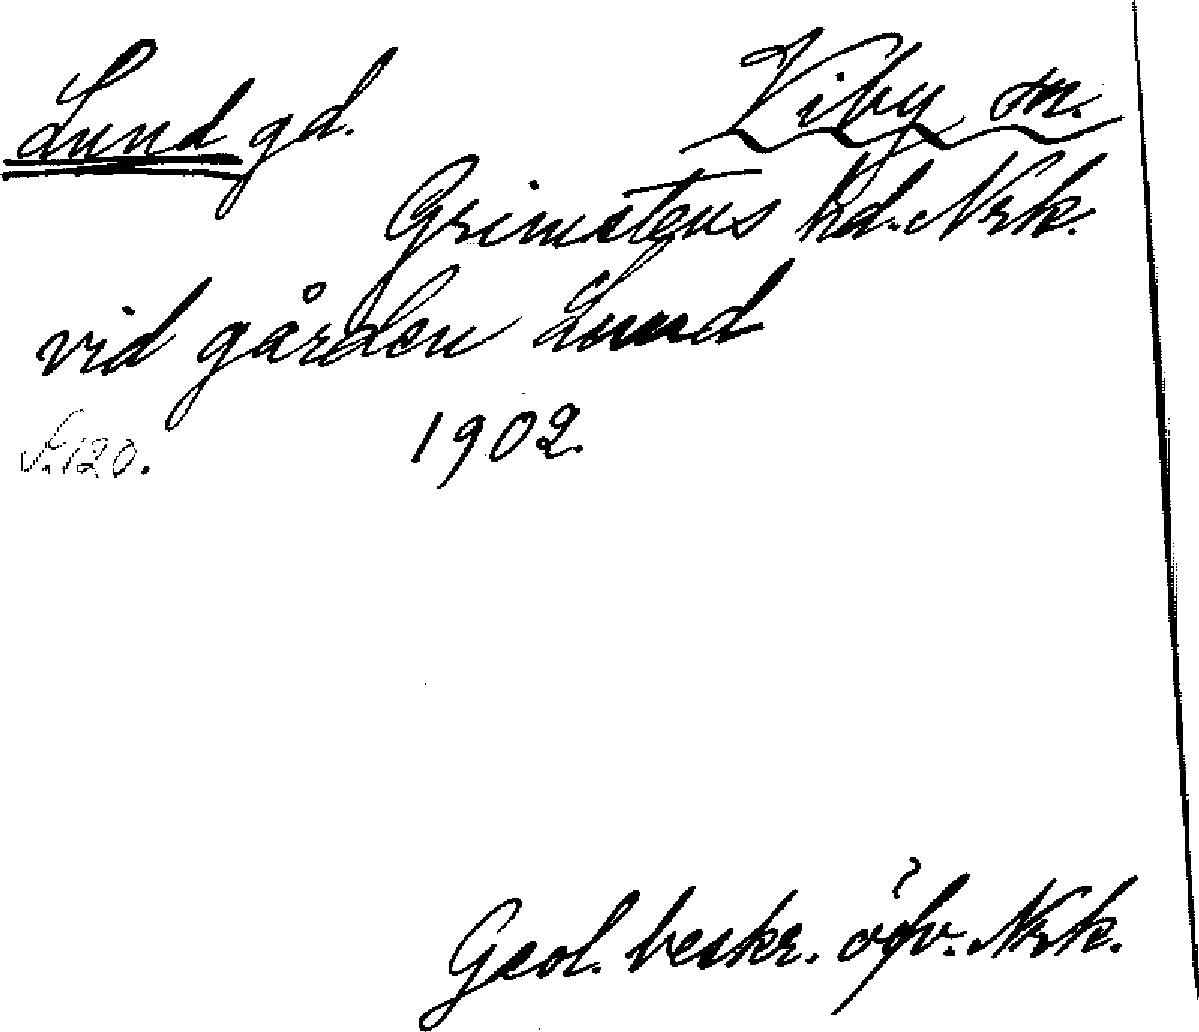 Lund gd. Viby sn.
Grimstens hd. Nrk.
vid gården Lund
S. 120. 1902.
Geol. beskr. öfv. Nrk.